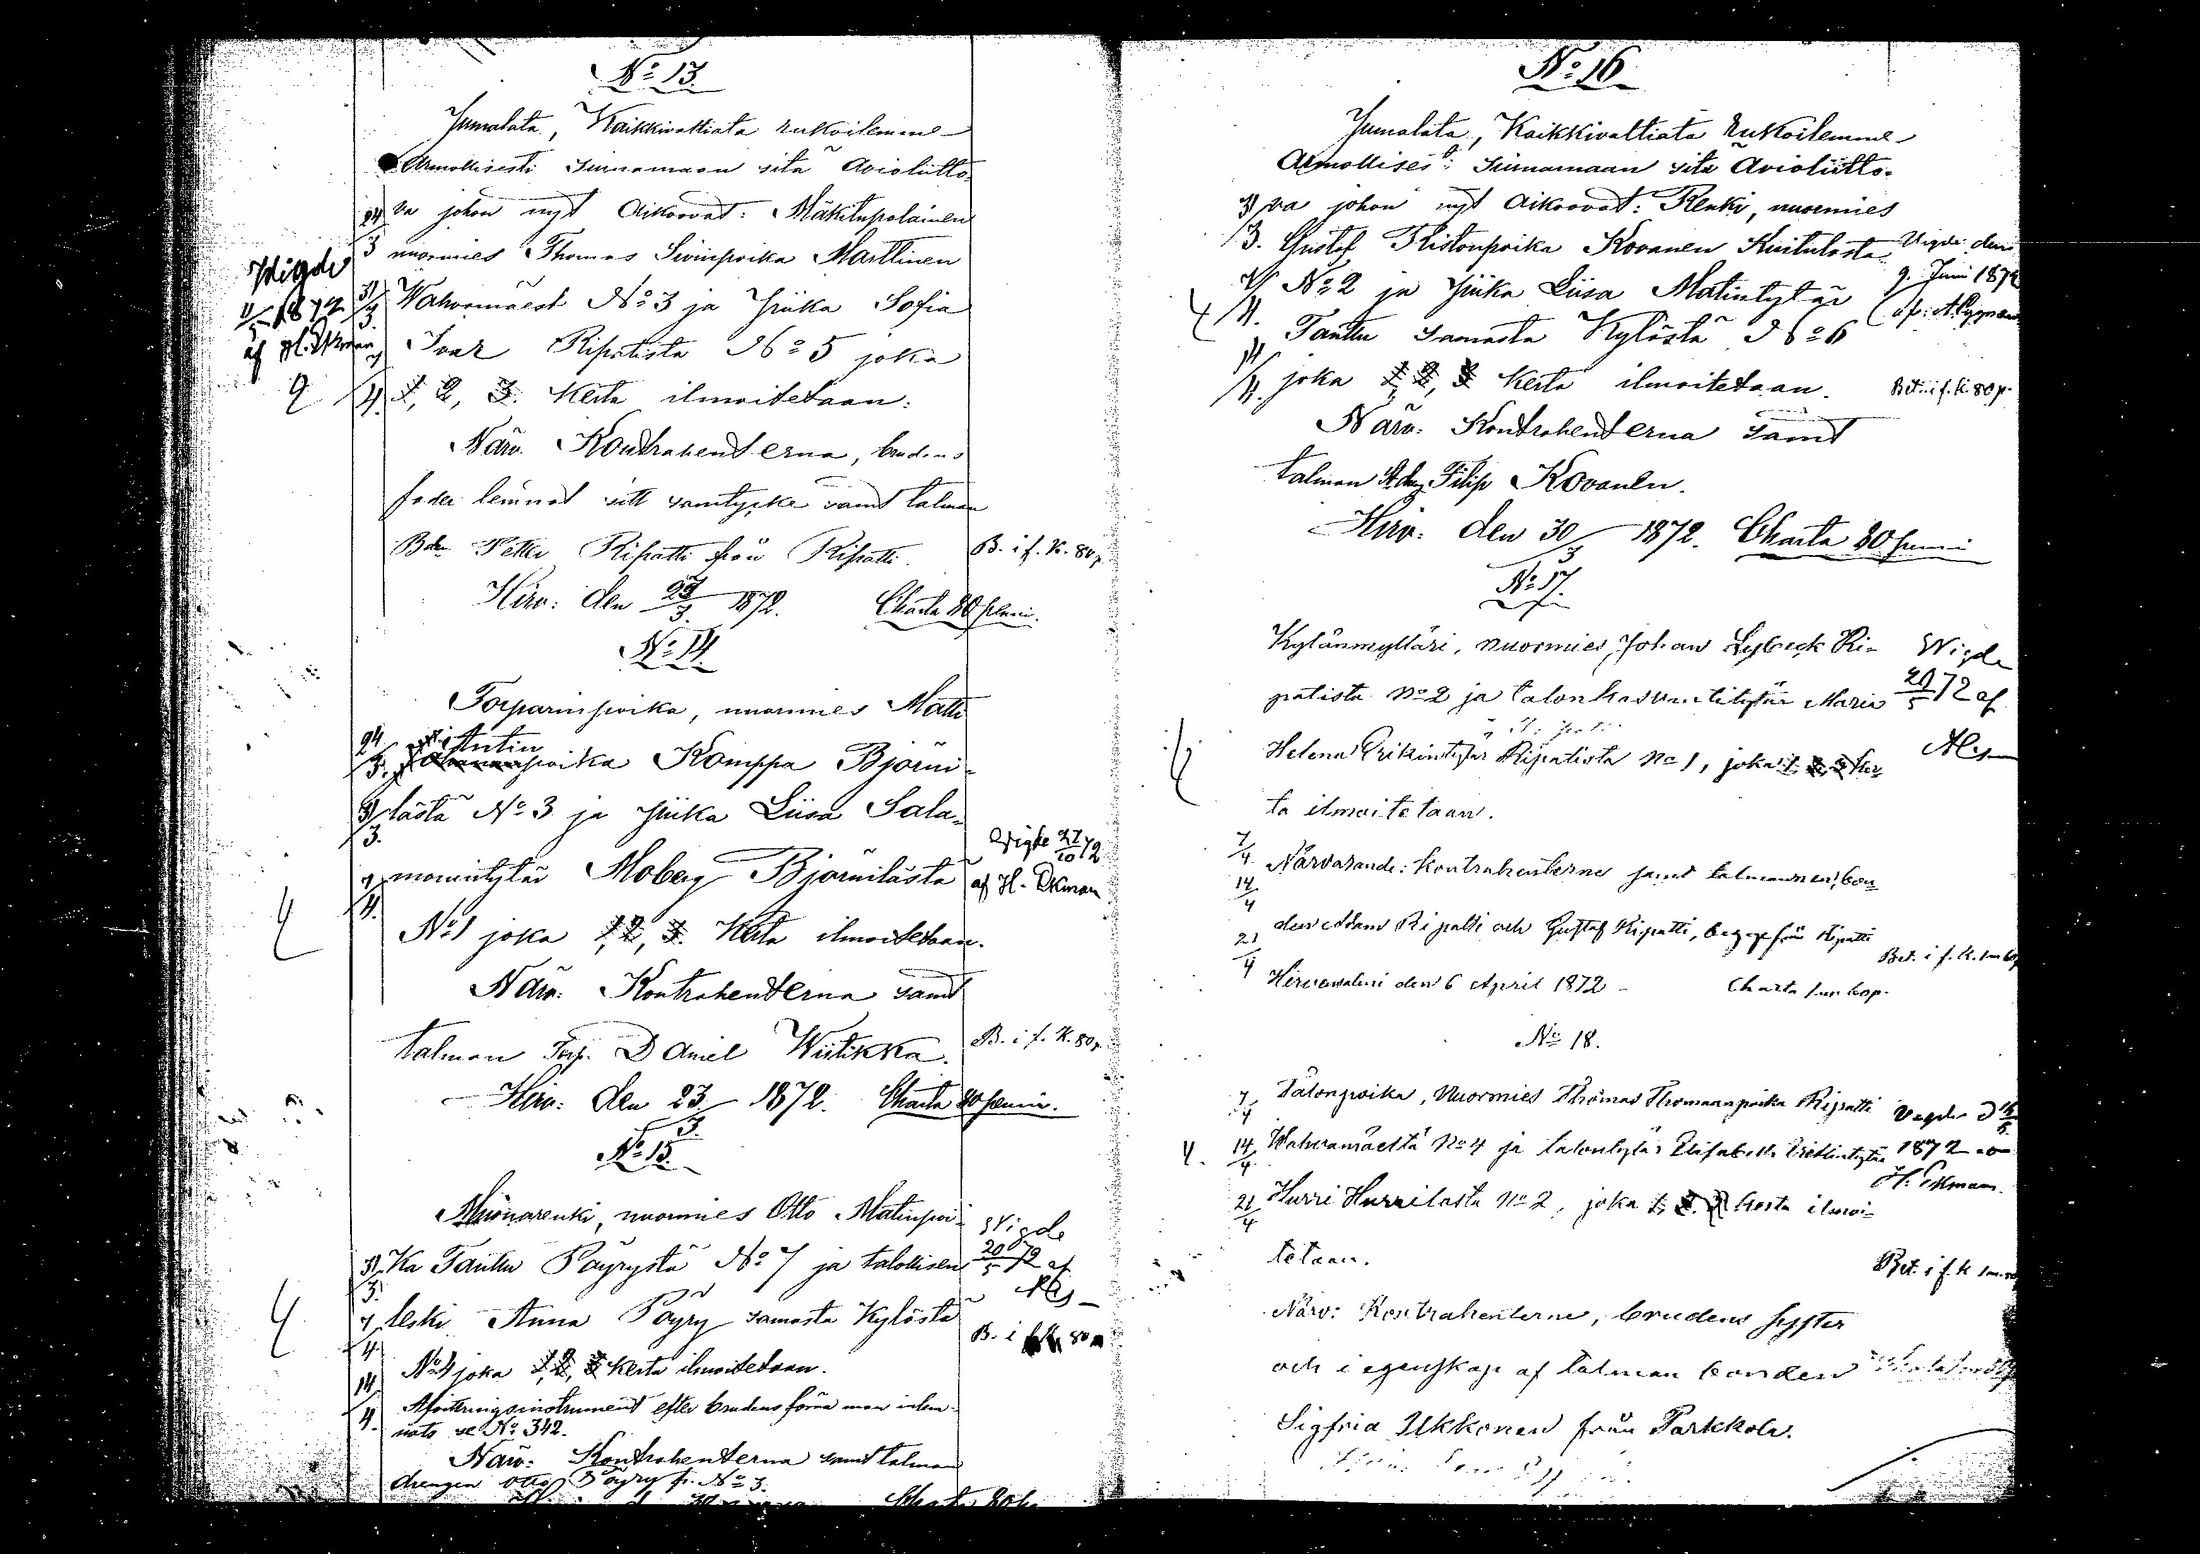 No 13.
Jumalata, Kaikkivaltiata rukoilemme
Armollisesti siunamaan sitä Avioliitto-
24/3 va johon nyt Aikoovat: Mäkitupolainen
nuormies Thomas Sivinpoika Marttinen
Wigde
11/5 1872
af H. Ekman
31/3 Wahvamäest No 3 ja Piika Sofia
Ivar Ripatista No 5 joka
7/4 1, 2, 3. Kerta ilmoitetaan:
Närv. Kontrahenterna, brudens
fader lemnat sitt samtycke samt talman
Bdn Petter Ripatti från Ripatti.
B. i f. K. 80 p.
Hirv: den 23/3 1872. Charta 80 penni.
No 14.
Torparinpoika, nuormies Matti
24/3. Antin
poika Komppa Björni-
31/3. lästä No 3 ja Piika Liisa Sala-
Wigde 27/10 72
af H. Ekman
7/4. monintytär Moberg Björnilästä
No 1 joka 1, 2, 3. Kerta ilmoitetaan.
Närv: Kontrahenterna samt
talman Torp. Daniel Wiitikka.
B. i f. K. 80 p.
Hirv: den 23/3 1872. Charta 80 penni.
No 15.
nuormies Otto Matinpoi-
Wigde
20/5 72 af
31/3. ka Tanttu Päyrystä No 7 ja talollisen
7/4 leski Anna Päyry samasta Kylästä
B. i f. K. 80 p
14/4. No 4 joka 1, 2, 3 Kerta ilmoitetaan.
Afvittringsinstrument efter brudens förra man inlem-
nats se No 342.
Närv: Kontrahenterna samt talman
drengen Otto Päyry fr. No 3.
Charta 80
No 16
Jumalata, Kaikkivaltiata Rukoilemme
Armollises: siunamaan sitä Avioliitto-
31/3. va johon nyt Aikoovat: Renki, nuormies
Gustef Ristonpoika Kovanen Kuitulasta
Vigde den
9. Juni 1872
7/4. No 2 ja Piika Liisa Matintytär
Tanttu samasta Kylästä No 6
14/4. joka 1, 2, 3 Kerta ilmoitetaan.
Bet. i f. k. 80 p.
Närv: Kontrahenterna samt
talman Filip Kovanen.
Hirv: den 30/3 1872. Charta 80 penni
No 17.
Kylänmylläri, nuormies, Johan Lybeck Ri-
Wigde
20/5 72 af
patista No 2 ja talonkasvattitytär Maria
Helena Erikintytär Ripatista No 1, joka 1, 2, 3 ker-
ta ilmoitetaan.
7/4. Närvarande: Kontrahenterne samt talmannen, bon-
14/4
21/4 den Adam Ripatti och Gustaf Ripatti, begge från Ripatti
Hirvensalmi den 6 April 1872
No 18.
7/4 Talonpoika, Nuormies Thomas Thomaanpoika Ripatti
14/4. Wahvamäeltä No 4 ja talontytär Elisabeth
1872
H. Ekman.
21/4 Hurri Hurrilasta No 2, joka 1, 2, 3 kerta ilmoi-
tetaan.
Närv: Kontrahenterne, brudens syster
och i egenskap af talman bonden
Sigfrid Ukkonen från Parkkola.